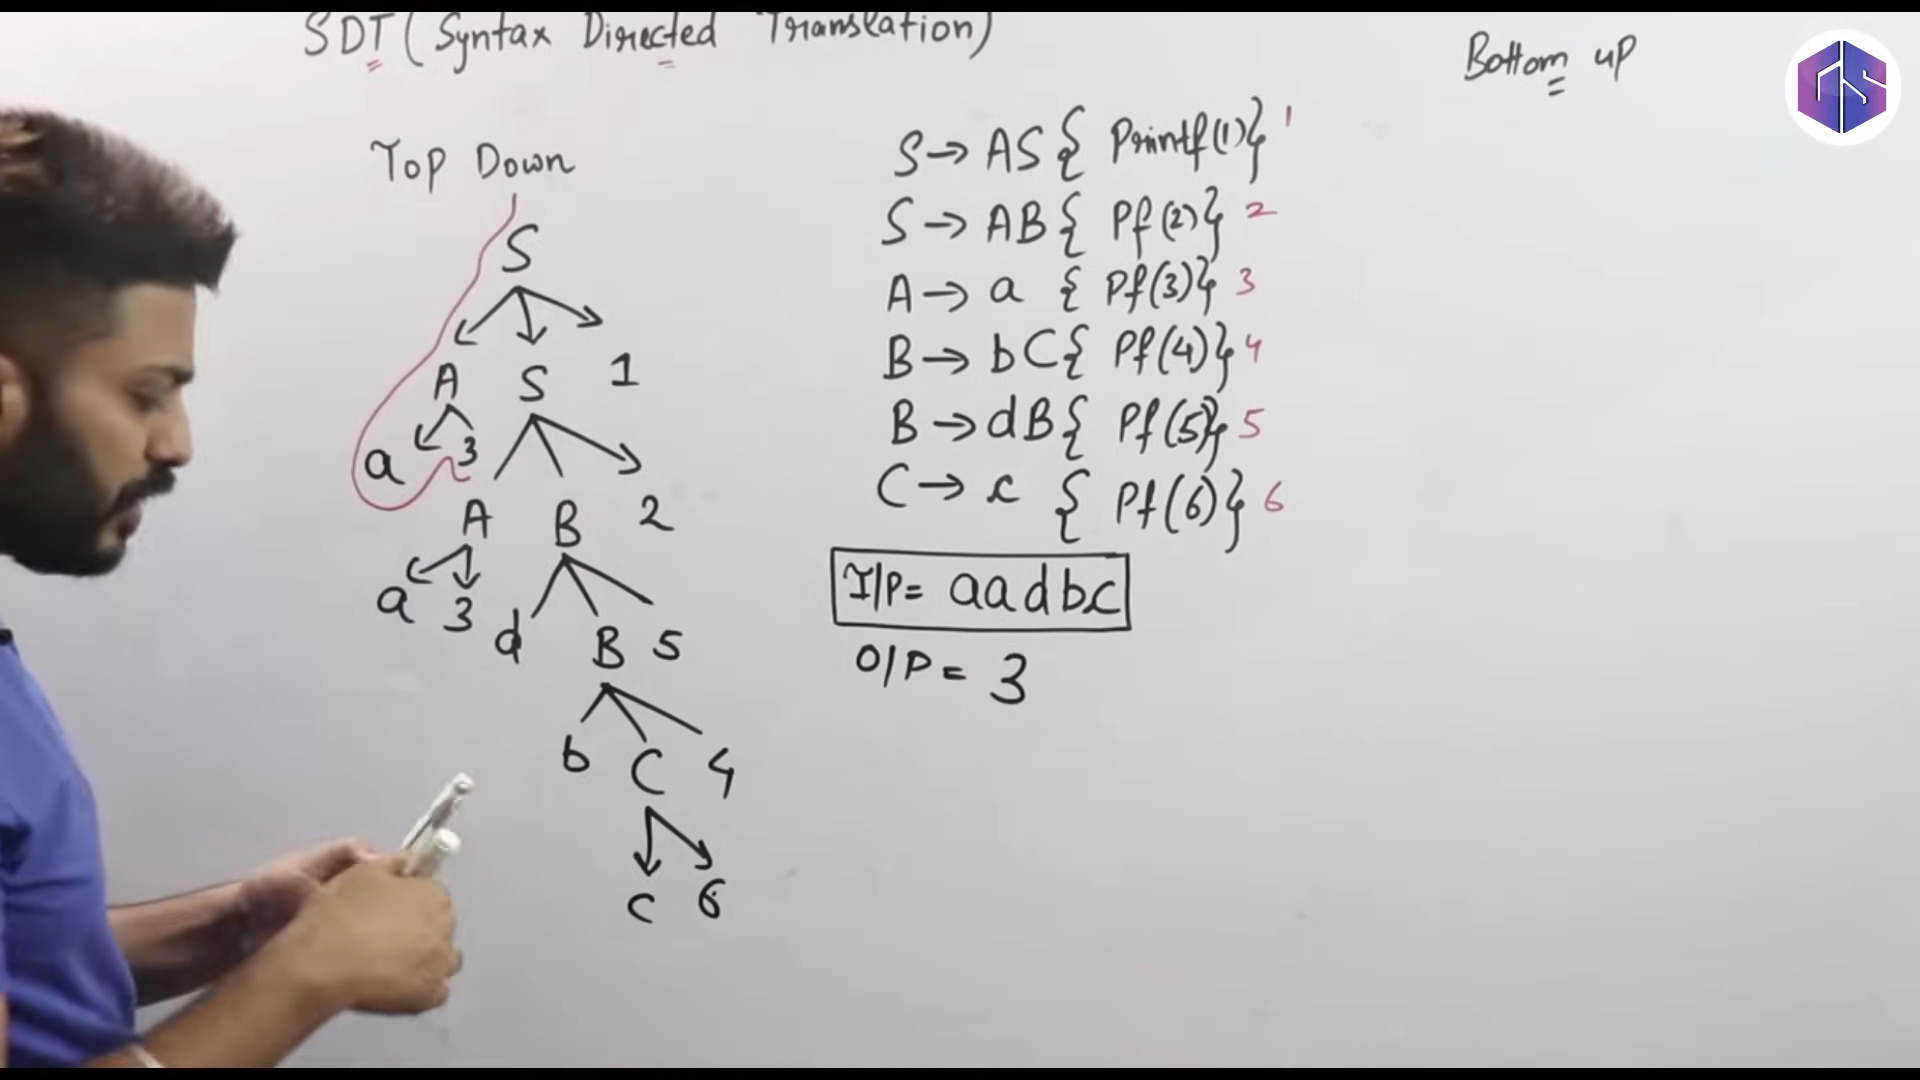 SDT (Syntax Directed Translation)
Bottom up
GS
Top Down
S
A S 1
a 3
A B 2
a 3
d B 5
b C 4
c 6
S → AS { Printf(1)} 1
S → AB { Pf(2)} 2
A → a { Pf(3)} 3
B → bC { Pf(4)} 4
B → dB { Pf(5)} 5
C → c { Pf(6)} 6
I/P = aadbc
O/P = 3